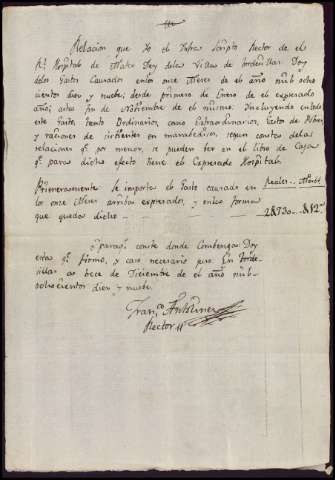 Relacion que Yo el Infra Scripto Rector de el
Rl. Hospital de Mater Dey de la Villa de tordesillas Doy
de los Gastos Causados en los once Meses de el año mil ocho
cientos diez y nuebe; desde primero de Enero de el expresado
año, asta fin de Nobiembre de el mismo. Incluyendo en todo
este Gasto, tanto Ordinarios, como Extraordinarios, Gasto de
y raciones de sirbientes en marabedises, segun consta de las
relaciones qe. por menor, se pueden ber en el libro de Caja
qe. para dicho efecto tiene el Expresado Hospital.
Primeramente se importa el Gasto causado en Reales..
los once Meses arriba expresados, y en la forma
que queda dicho
Y para qe. conste donde Combenga Doy
esta qe. firmo, y caso necesario juro. En torde
sillas a doce de Diciembre de el año mil
ochocientos diez y nuebe.
Franco. Antolinez
Rector